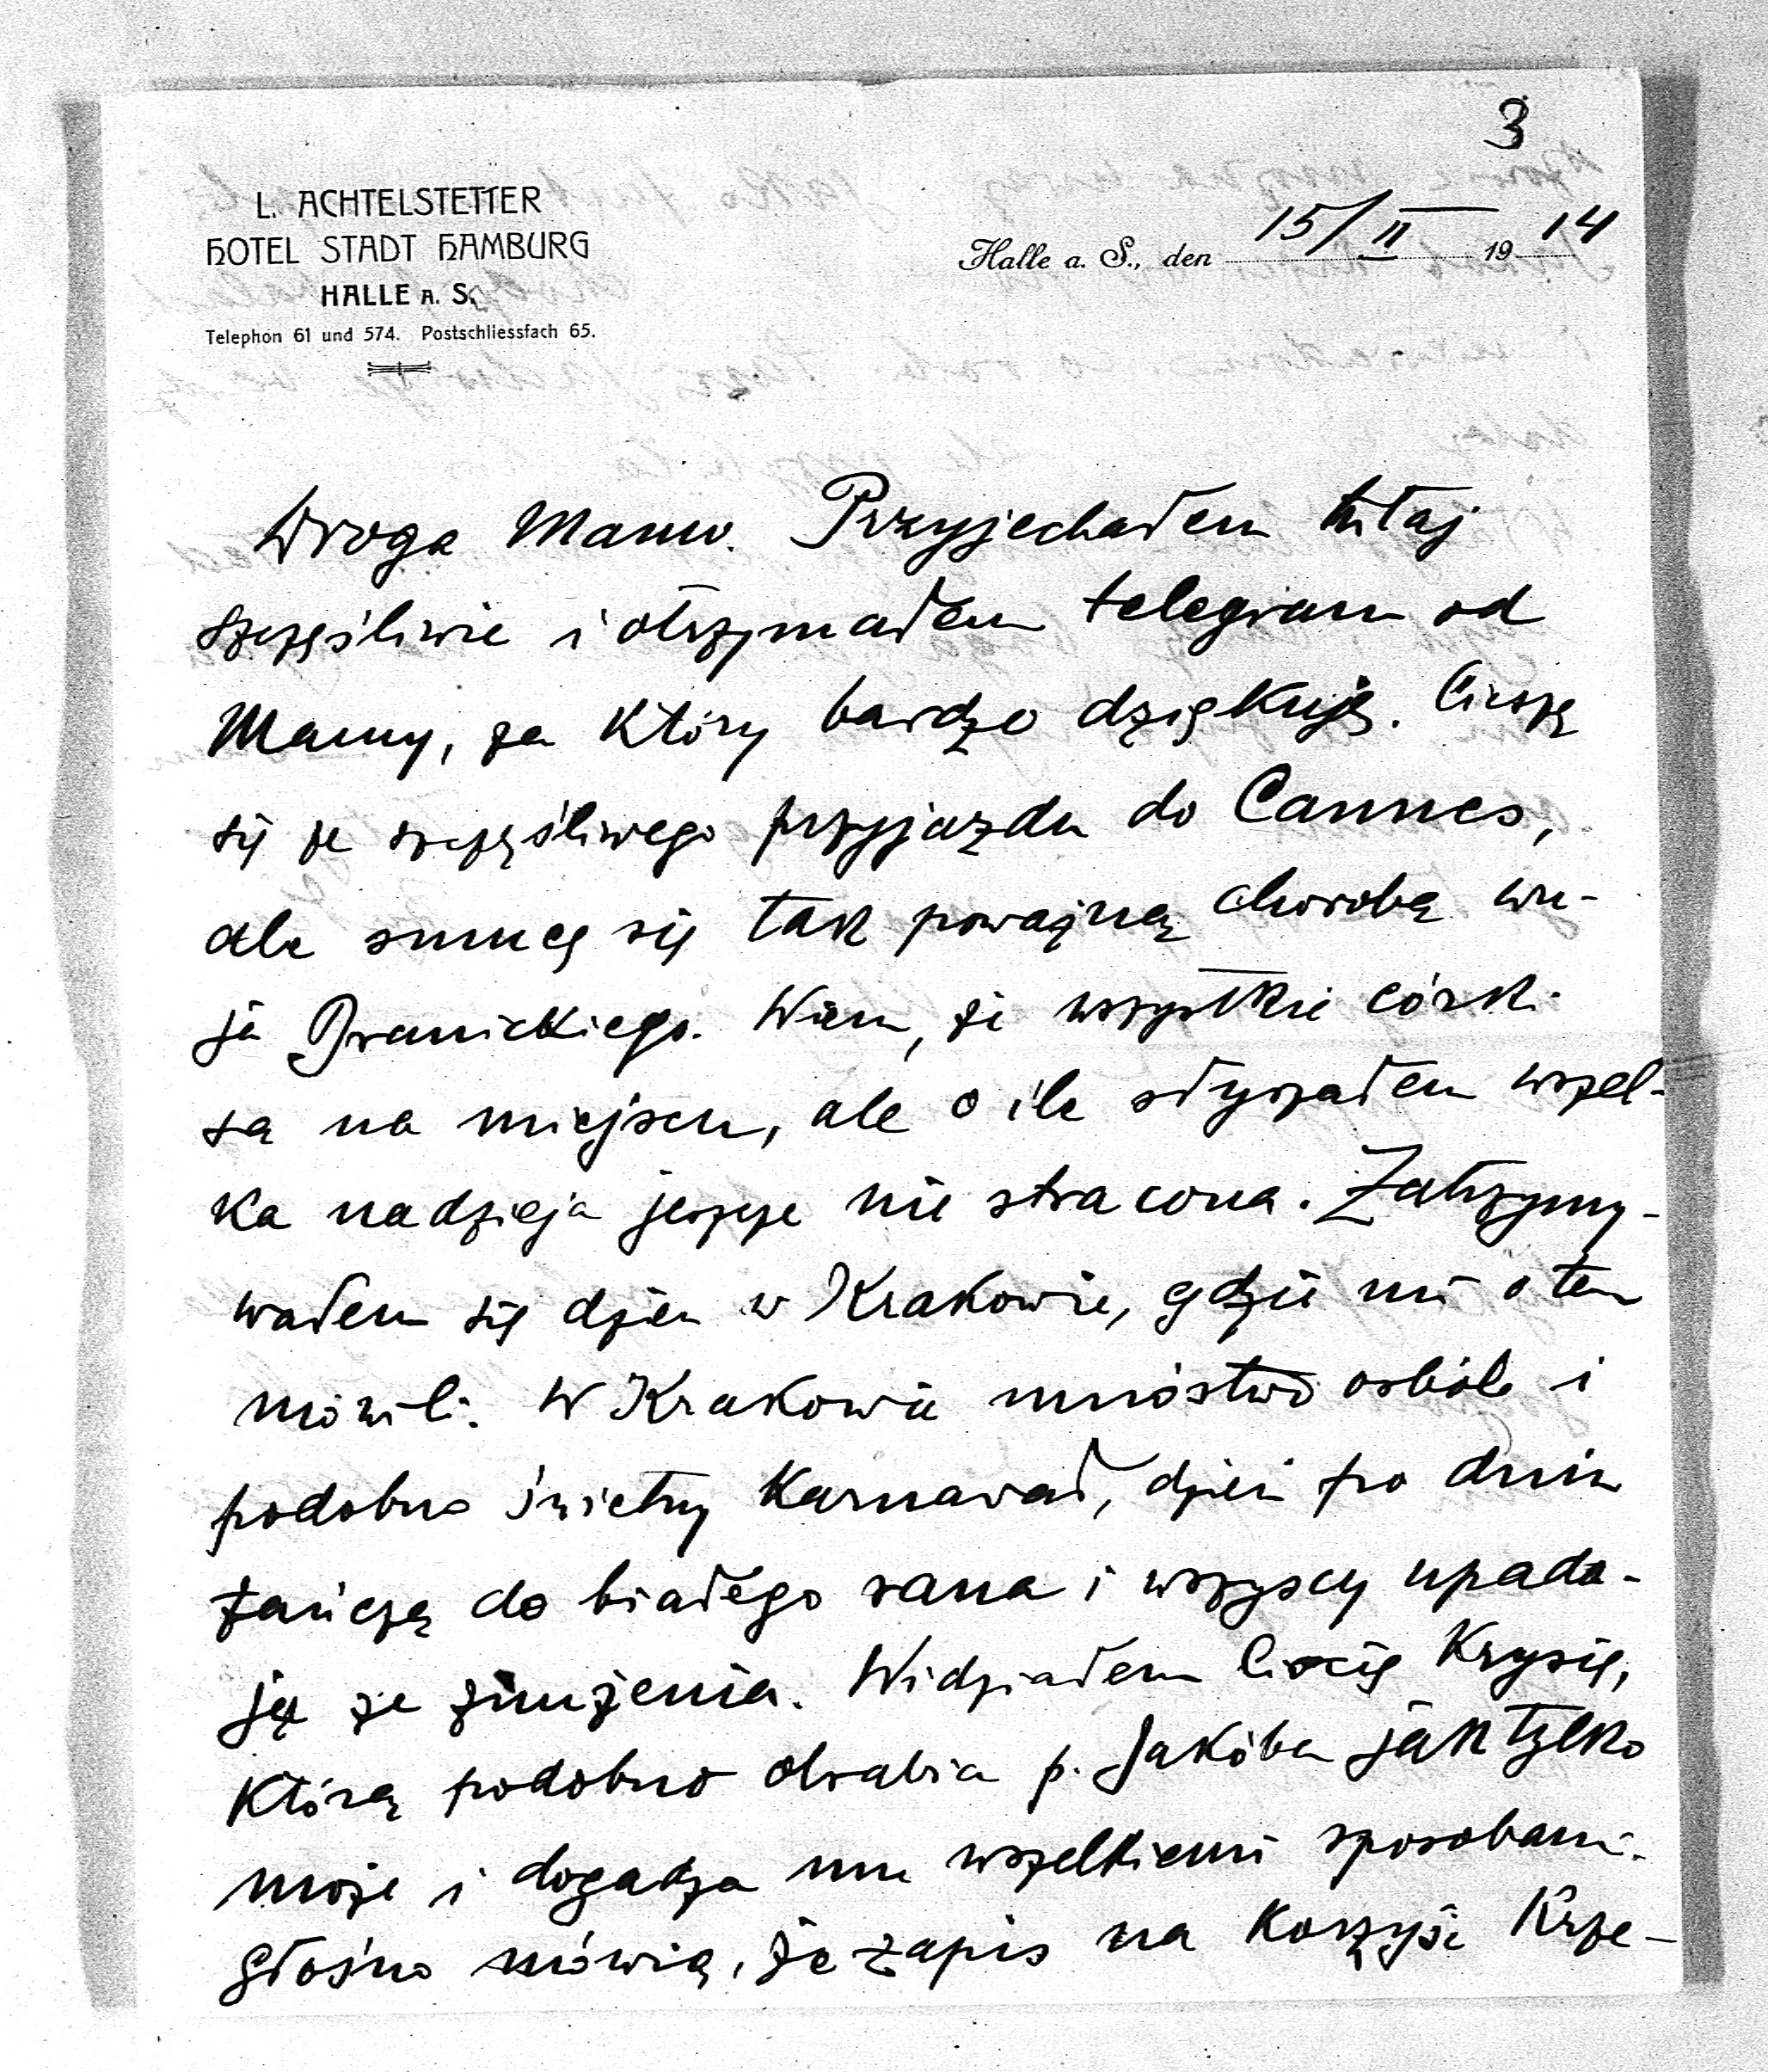 3
L. ACHTELSTETTER
HOTEL STADT HAMBURG
HALLE A. S.
Telephon 61 und 574. Postschliessfach 65.
Halle a. S., den 15/II 1914
Droga Mamo. Przyjechałem tutaj
szczęśliwie i otrzymałem telegram od
Mamy, za który bardzo dziękuję. Cieszę
się ze szczęśliwego przyjazdu do Cannes,
ale smucę się tak poważną chorobą wu-
ja Branickiego. Wiem, że wszystkie córki
są na miejscu, ale o ile słyszałem wszel-
ka nadzieja jeszcze nie stracona. Zatrzymy-
wałem się dzień w Krakowie, gdzie mi o tem
mówili. W Krakowie mnóstwo osób i
podobno świetny karnawał, dzień po dniu
tańczą do białego rana i wszyscy upada-
ją ze znużenia. Widziałem Ciocię Krysię,
którą podobno obrabia p. Jakóba jak tylko
może i dogadza mu wszelkiemi sposobami.
głośno mówią, że zapis na korzyść Krze-